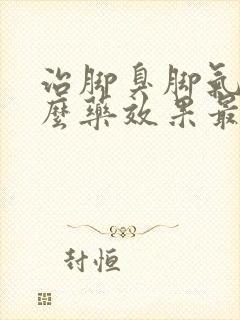 治脚臭脚气
麼药效果最
封恒